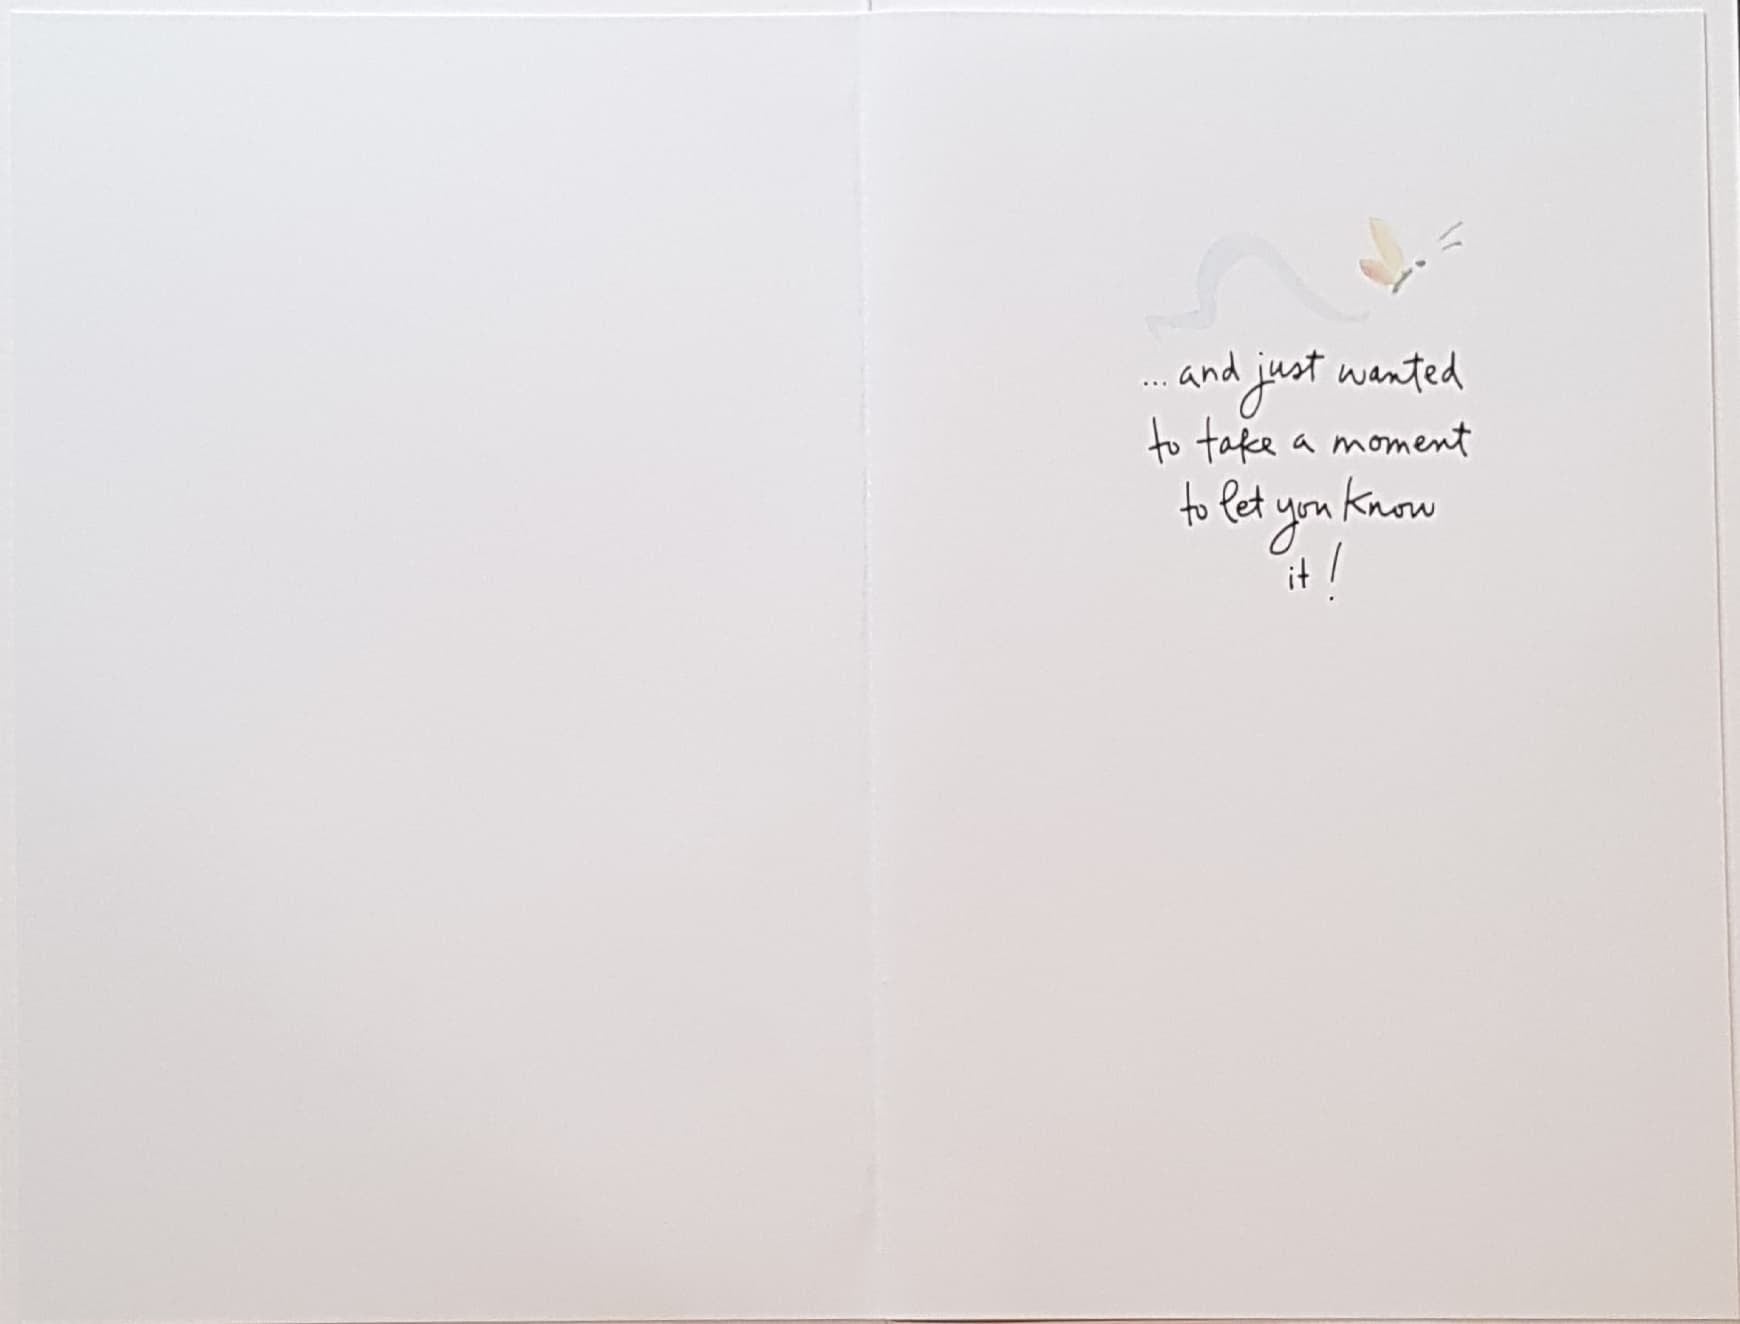 ... and just wanted
to take a moment
to let you know
it!